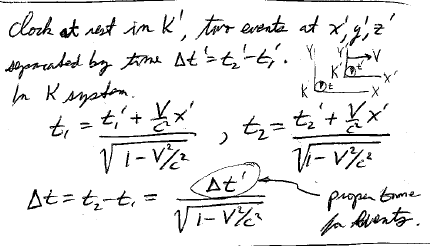 Clock at rest in K', two events at x', y', z'
separated by time Δt' = t₂' - t₁'.
In K system.
Y Y' → V
K' t' X'
K t X
t₁ = (t₁' + V/c² x') / √(1 - V²/c²) , t₂ = (t₂' + V/c² x') / √(1 - V²/c²)
Δt = t₂ - t₁ = Δt' / √(1 - V²/c²)
proper time
for events.